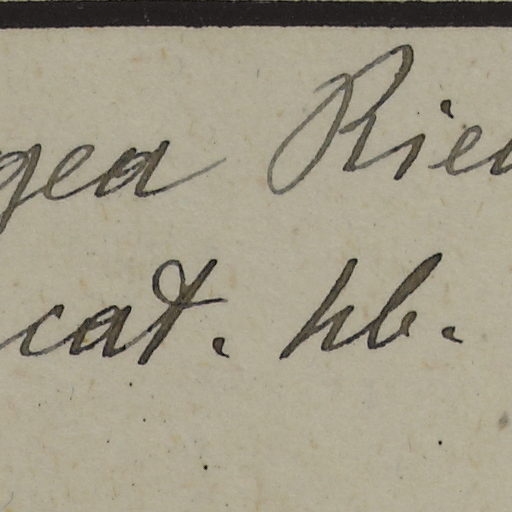 gea Ried
cat. hb.